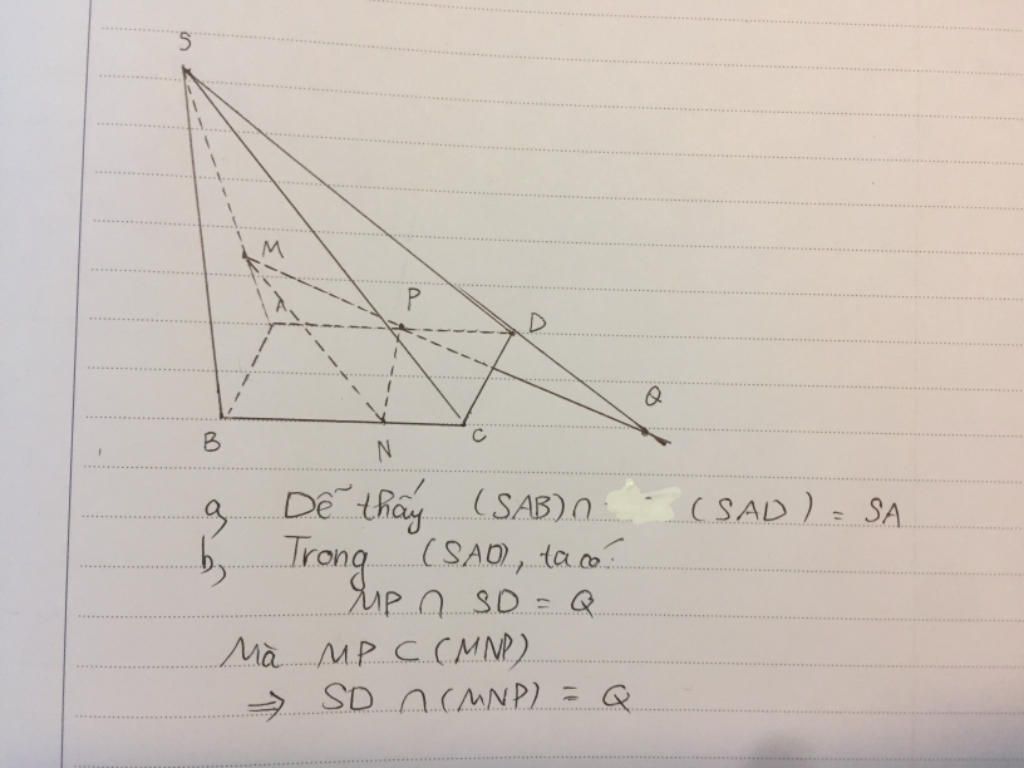 S
M
A
P
D
Q
B
N
C
a, Dễ thấy (SAB)∩ (SAD) = SA
b, Trong (SAD), ta có:
MP ∩ SD = Q
Mà MP ⊂ (MNP)
⇒ SD ∩ (MNP) = Q